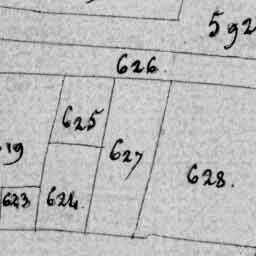 592
626.
625
19
627
628.
623
624.